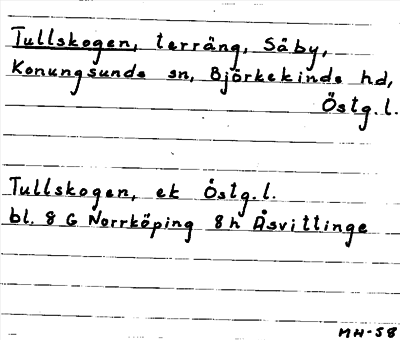 Tullskogen, terräng, Säby,
Konungsunds sn, Björkekinds hd,
Östg.l.
Tullskogen, ek Östg.l.
bl. 8 G Norrköping 8 h Åsvittinge
MH-58